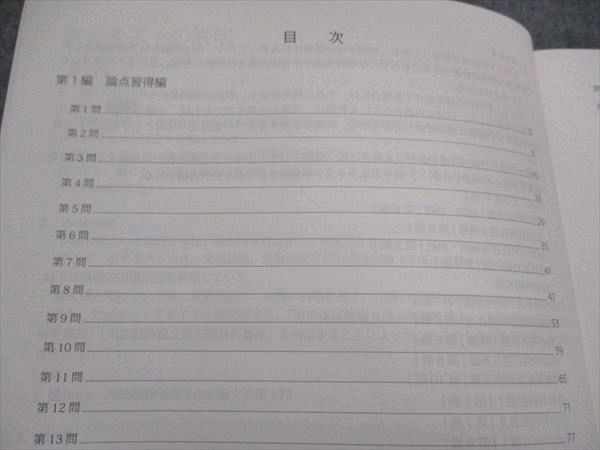 目　次
第１編　論点習得編
第１問 3
第２問 9
第３問 16
第４問 23
第５問 29
第６問 35
第７問 41
第８問 47
第９問 53
第10問 59
第11問 65
第12問 71
第13問 77